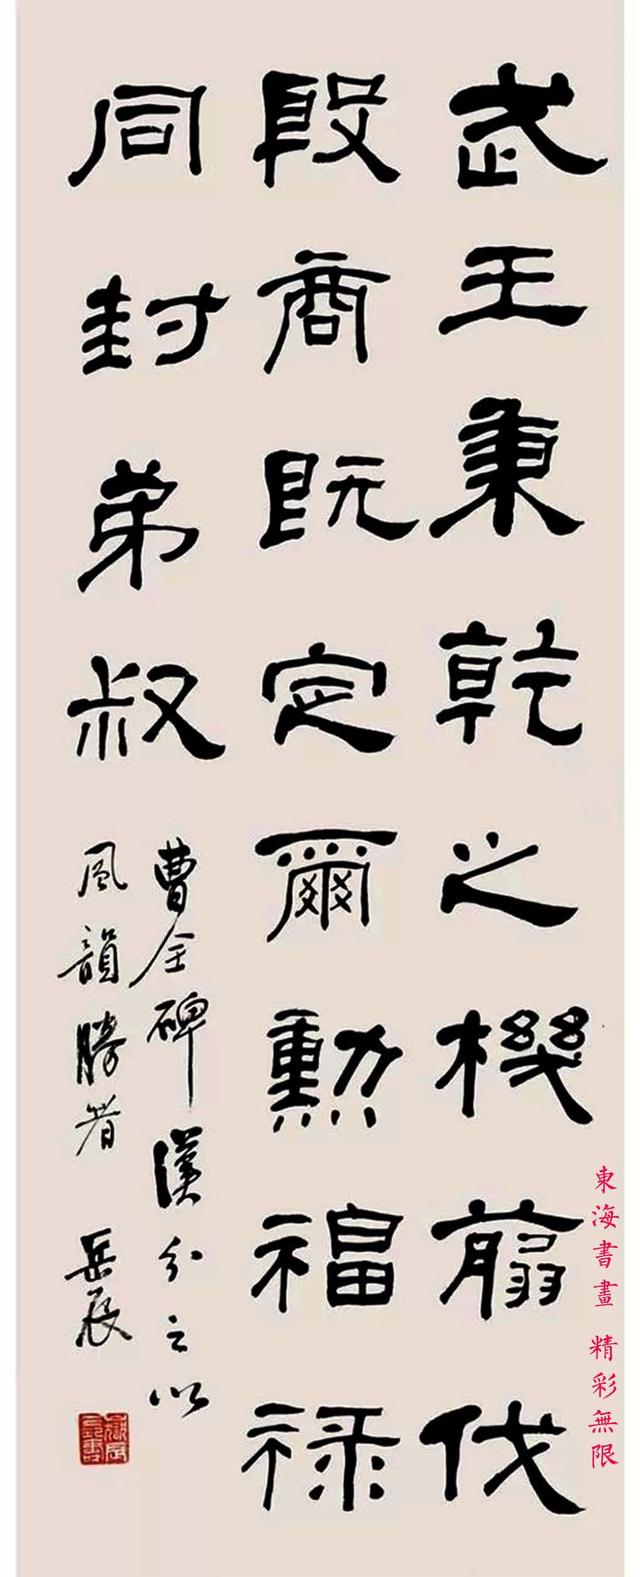 武王秉乾之機翦伐
殷商既定爾勳福禄
同封弟叔
曹全碑漢分之以
風韻勝者 岳辰
東海書畫 精彩無限